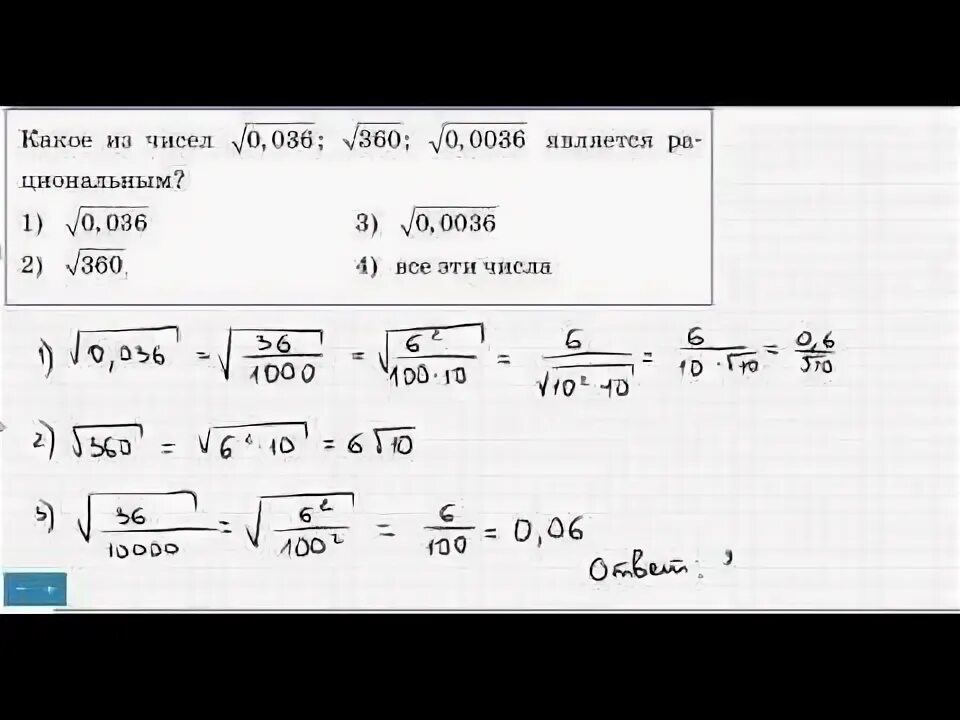 Какое из чисел √0,036; √360; √0,0036 является ра-
циональным?
1) √0,036
3) √0,0036
2) √360
4) все эти числа
1) √0,036 = √(36/1000) = √(6²/(100·10)) = 6/√(10²·10) = 6/(10·√10) = 0,6/√10
2) √360 = √(6²·10) = 6√10
3) √(36/10000) = √(6²/100²) = 6/100 = 0,06
Ответ: